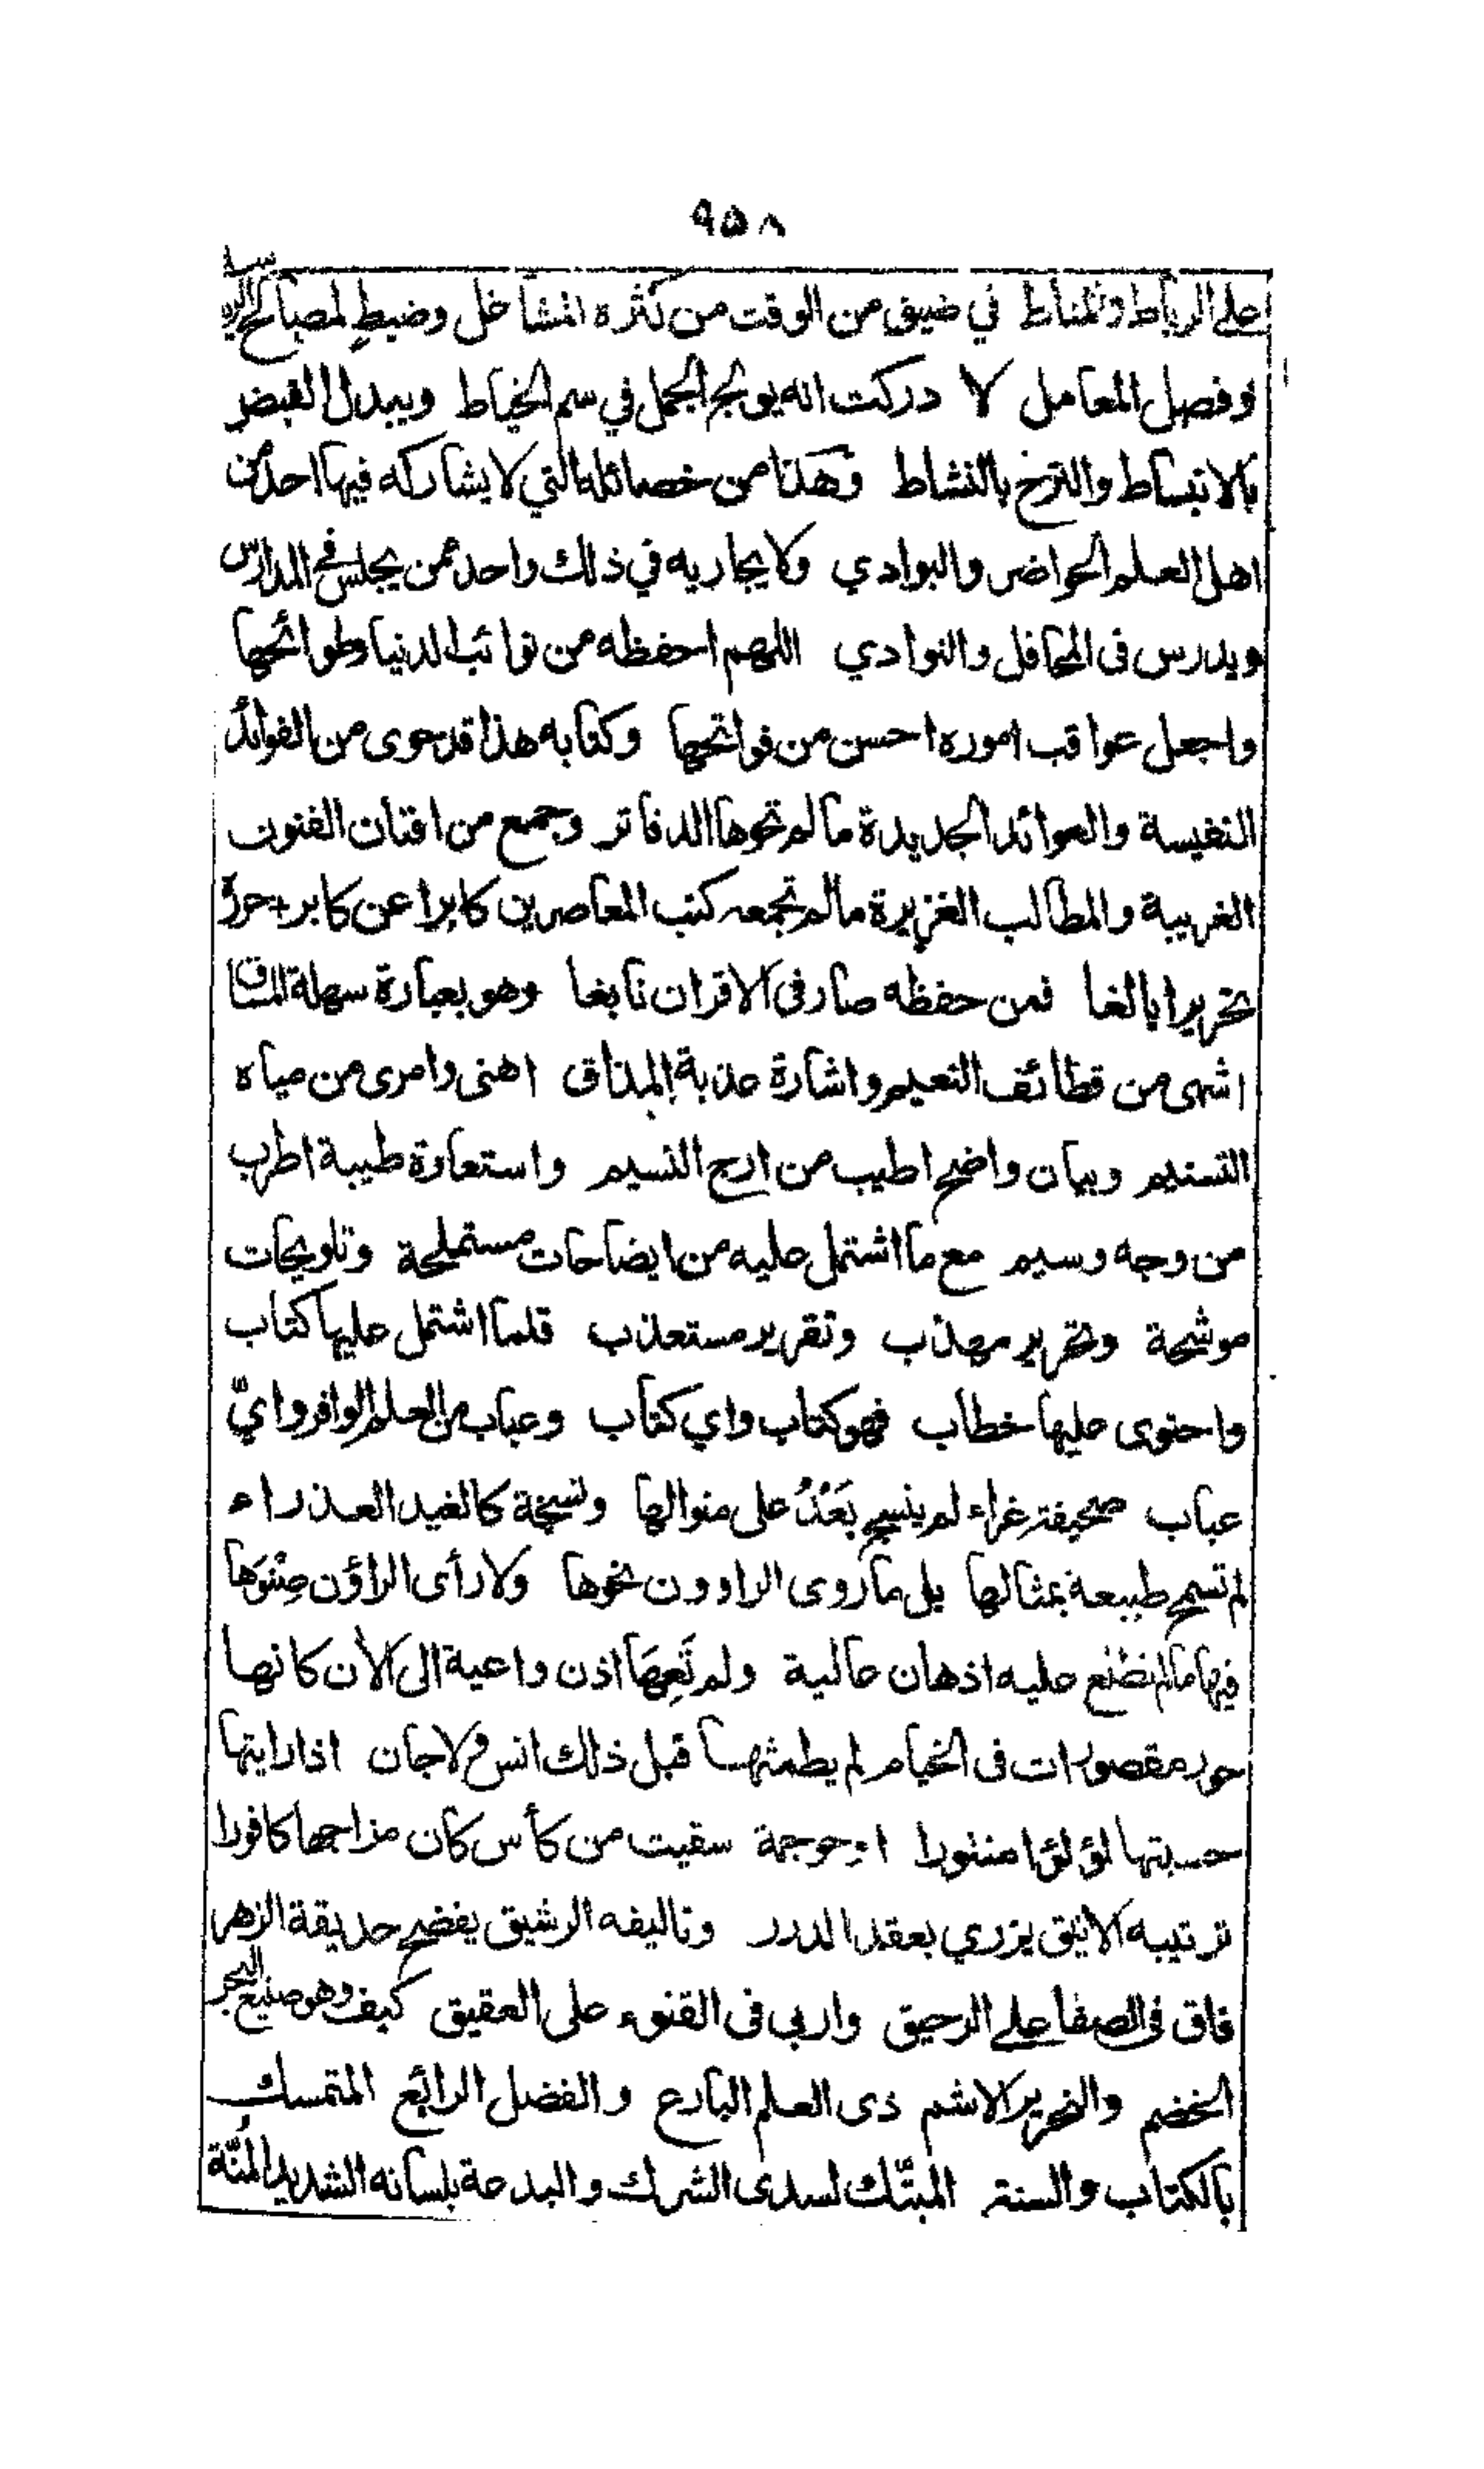 ٩٥٨
على الرباط والمناط في ضيق من الوقت من كثرة المشاغل وضبط لمصالح
وفصل المعامل لا دركت انه يولج الجمل في سم الخياط ويبدل القبض
بالانبساط والترخ بالنشاط وهذا من خصائله التي لا يشاركه فيها احد من
اهل العلم الحواضر والبوادي ولا يجاريه في ذلك واحد ممن يجلس في المدارس
ويدرس في المحافل والنوادي اللهم احفظه من نوائب الدنيا وطوائحها
واجعل عواقب اموره احسن من فواتحها وكتابه هذا قد حوى من الفوائد
النفيسة والعوائد الجديدة ما لم تحوها الدفاتر وجمع من افنان الفنون
الغريبة والمطالب الغزيرة ما لم تجمعه كتب المعاصرين كابرا عن كابر حرره
تحريرا بالغا فمن حفظه صار في الاقران نابغا وهو بعبارة سهلة المساق
اشهى من قطائف النعيم واشارة عذبة المذاق اهنى وامرى من مياه
التسنيم وبيان واضح اطيب من ارج النسيم واستعارة طيبة اطرب
من وجه وسيم مع ما اشتمل عليه من ايضاحات مستملحة وتلويحات
موشحة وتحرير مهذب وتقرير مستعذب قلما اشتمل عليها كتاب
واحتوى عليها خطاب فهو كتاب واي كتاب وعباب من العلم الوافر وايّ
عباب صحيفة غراء لم ينسج بَعْدُ على منوالها ونسخة كالغيد العذراء
لم تسمح طبيعة بمثالها بل ما روى الراوون نحوها ولا رأى الراؤن صِنْوَها
فيها ما لم تطلع عليه اذهان عالية ولم تَعِهَا اذن واعية الى الأن كانها
حور مقصورات فى الخيام لم يطمثها قبل ذلك انس ولا جان اذا رايتها
حسبتها لؤلؤا منثورا او حوجمة سقيت من كأس كان مزاجها كافورا
ترتيبه الانيق يزري بعقد الدرر وتاليفه الرشيق يفضح حديقة الزهر
فاق في الصفا على الرحيق واربى فى القنوء على العقيق كيف وهو صنيع البحر
الخضم والنحرير الاشم ذى العلم البارع والفضل الرائع المتمسك
بالكتاب والسنة المبتّك لسدى الشرك والبدعة بلسانه الشديد المُنّة